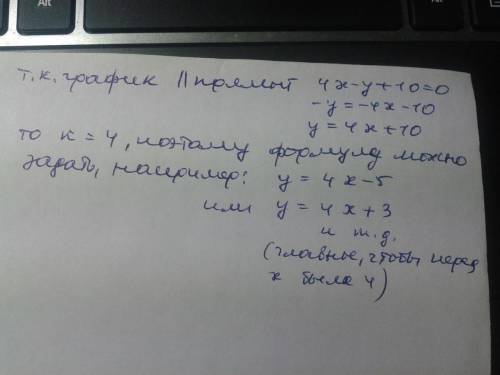 т.к. график || прямой 4x-y+10=0
-y=-4x-10
y=4x+10
то k=4, поэтому формулу можно
задать, например: y=4x-5
или y=4x+3
и т.д.
(главное, чтобы перед
x была 4)
Alt
Alt